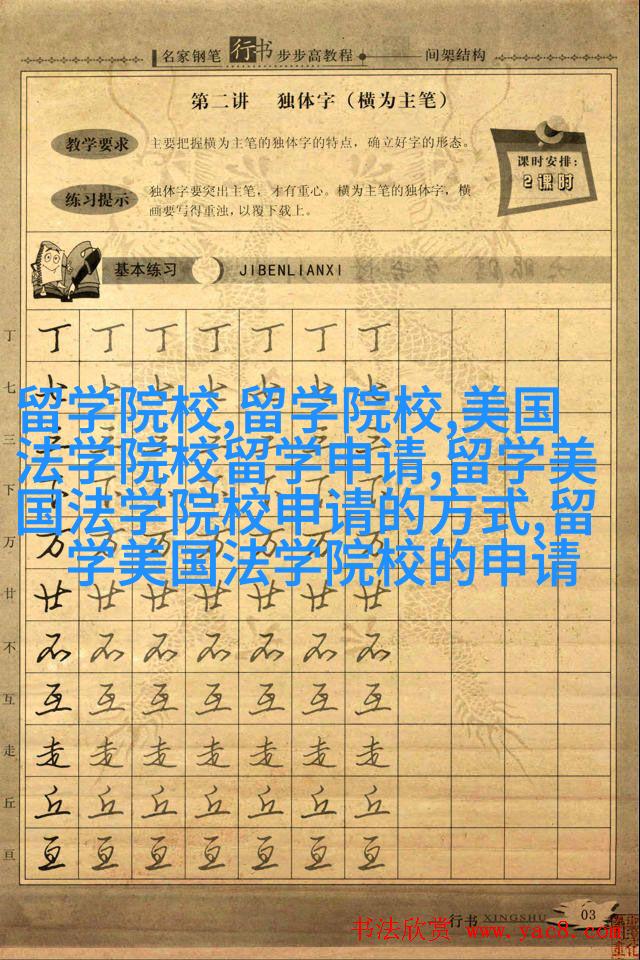 名家钢笔 行书 步步高教程 间架结构
第二讲 独体字（横为主笔）
教学要求 主要把握横为主笔的独体字的特点，确立好字的形态。
课时安排：
2课时
练习提示 独体字要突出主笔，才有重心。横为主笔的独体字，横
画要写得重浊，以覆下载上。
基本练习 JIBENLIANXI
丁 丁 丁 丁 丁 丁 丁 丁
七 七 七 七 七 七 七 七
留学院校,留学院校,美国
三
法学院校留学申请,留学美
下
国法学院校申请的方式,留
万 万 万 万 万 万 万 万
学美国法学院校的申请
廿 廿 廿 廿 廿 廿 廿 廿
不 不 不 不 不 不 不 不
互 互 互 互 互 互 互 互
走 走 走 走 走 走 走 走
丘 丘 丘 丘 丘 丘 丘 丘
亘 亘 亘 亘 亘 亘 亘 亘
行书 XINGSHU 03
书法欣赏 www.yac8.com